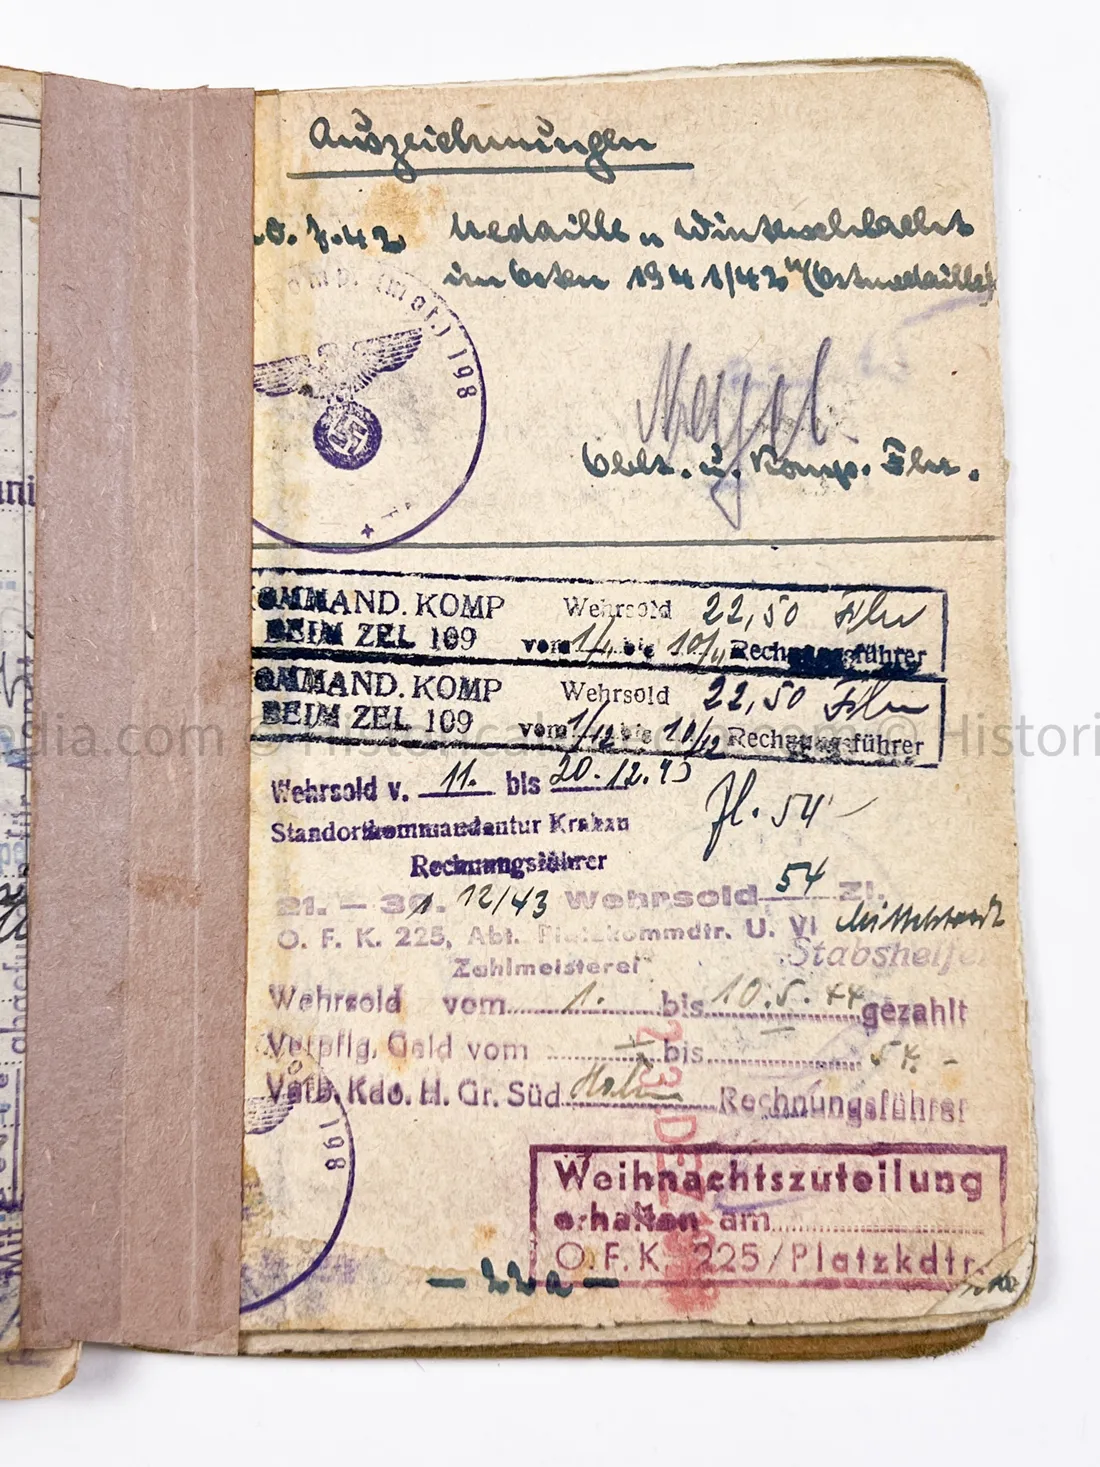 Auszeichnungen
.8.42 Medaille „Winterschlacht
im Osten 1941/42" (Ostmedaille)
Komp. (mot.) 198
Oblt. u. Komp. Fhr.
KOMMAND. KOMP Wehrsold 22,50
BEIM ZEL 109 vom 1/11 bis 10/11 Rechnungsführer
KOMMAND. KOMP Wehrsold 22,50
BEIM ZEL 109 vom 1/12 bis 10/12 Rechnungsführer
Wehrsold v. 11. bis 20.12.43
Zl. 54 –
Standortkommandantur Krakau
Rechnungsführer
21. – 31. 12/43 Wehrsold 54 Zl.
O. F. K. 225, Abt. Platzkommdtr. U. VI
Stabshelfer
Zahlmeisterei
Wehrsold vom 1. bis 10.5.44 gezahlt
Verpflg. Geld vom bis 54. –
Verb. Kdo. H. Gr. Süd Rechnungsführer
198
23. DEZ.
Weihnachtszuteilung
erhalten am
O. F. K. 225/Platzkdtr.
– 22a –
edia.com © Historical © Histori